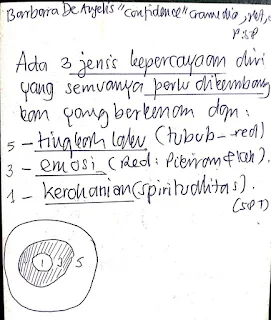 Barbara De Angelis "Confidence" Gramedia,
P.S.P
Ada 3 jenis kepercayaan diri
yang semuanya perlu dikembang
kan yang berkenaan dgn:
5 - tingkah laku (tubuh - red)
3 - emosi (Red: Pikiran & 
1 - kerohanian (spiritualitas).
(SPT)
1 3 5